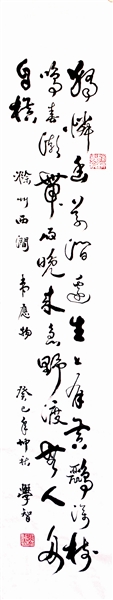 獨憐幽草澗邊生上有黃鸝深樹
鳴春潮帶雨晚來急野渡無人舟
自橫 滁州西澗 韋應物 癸巳年仲秋 學智